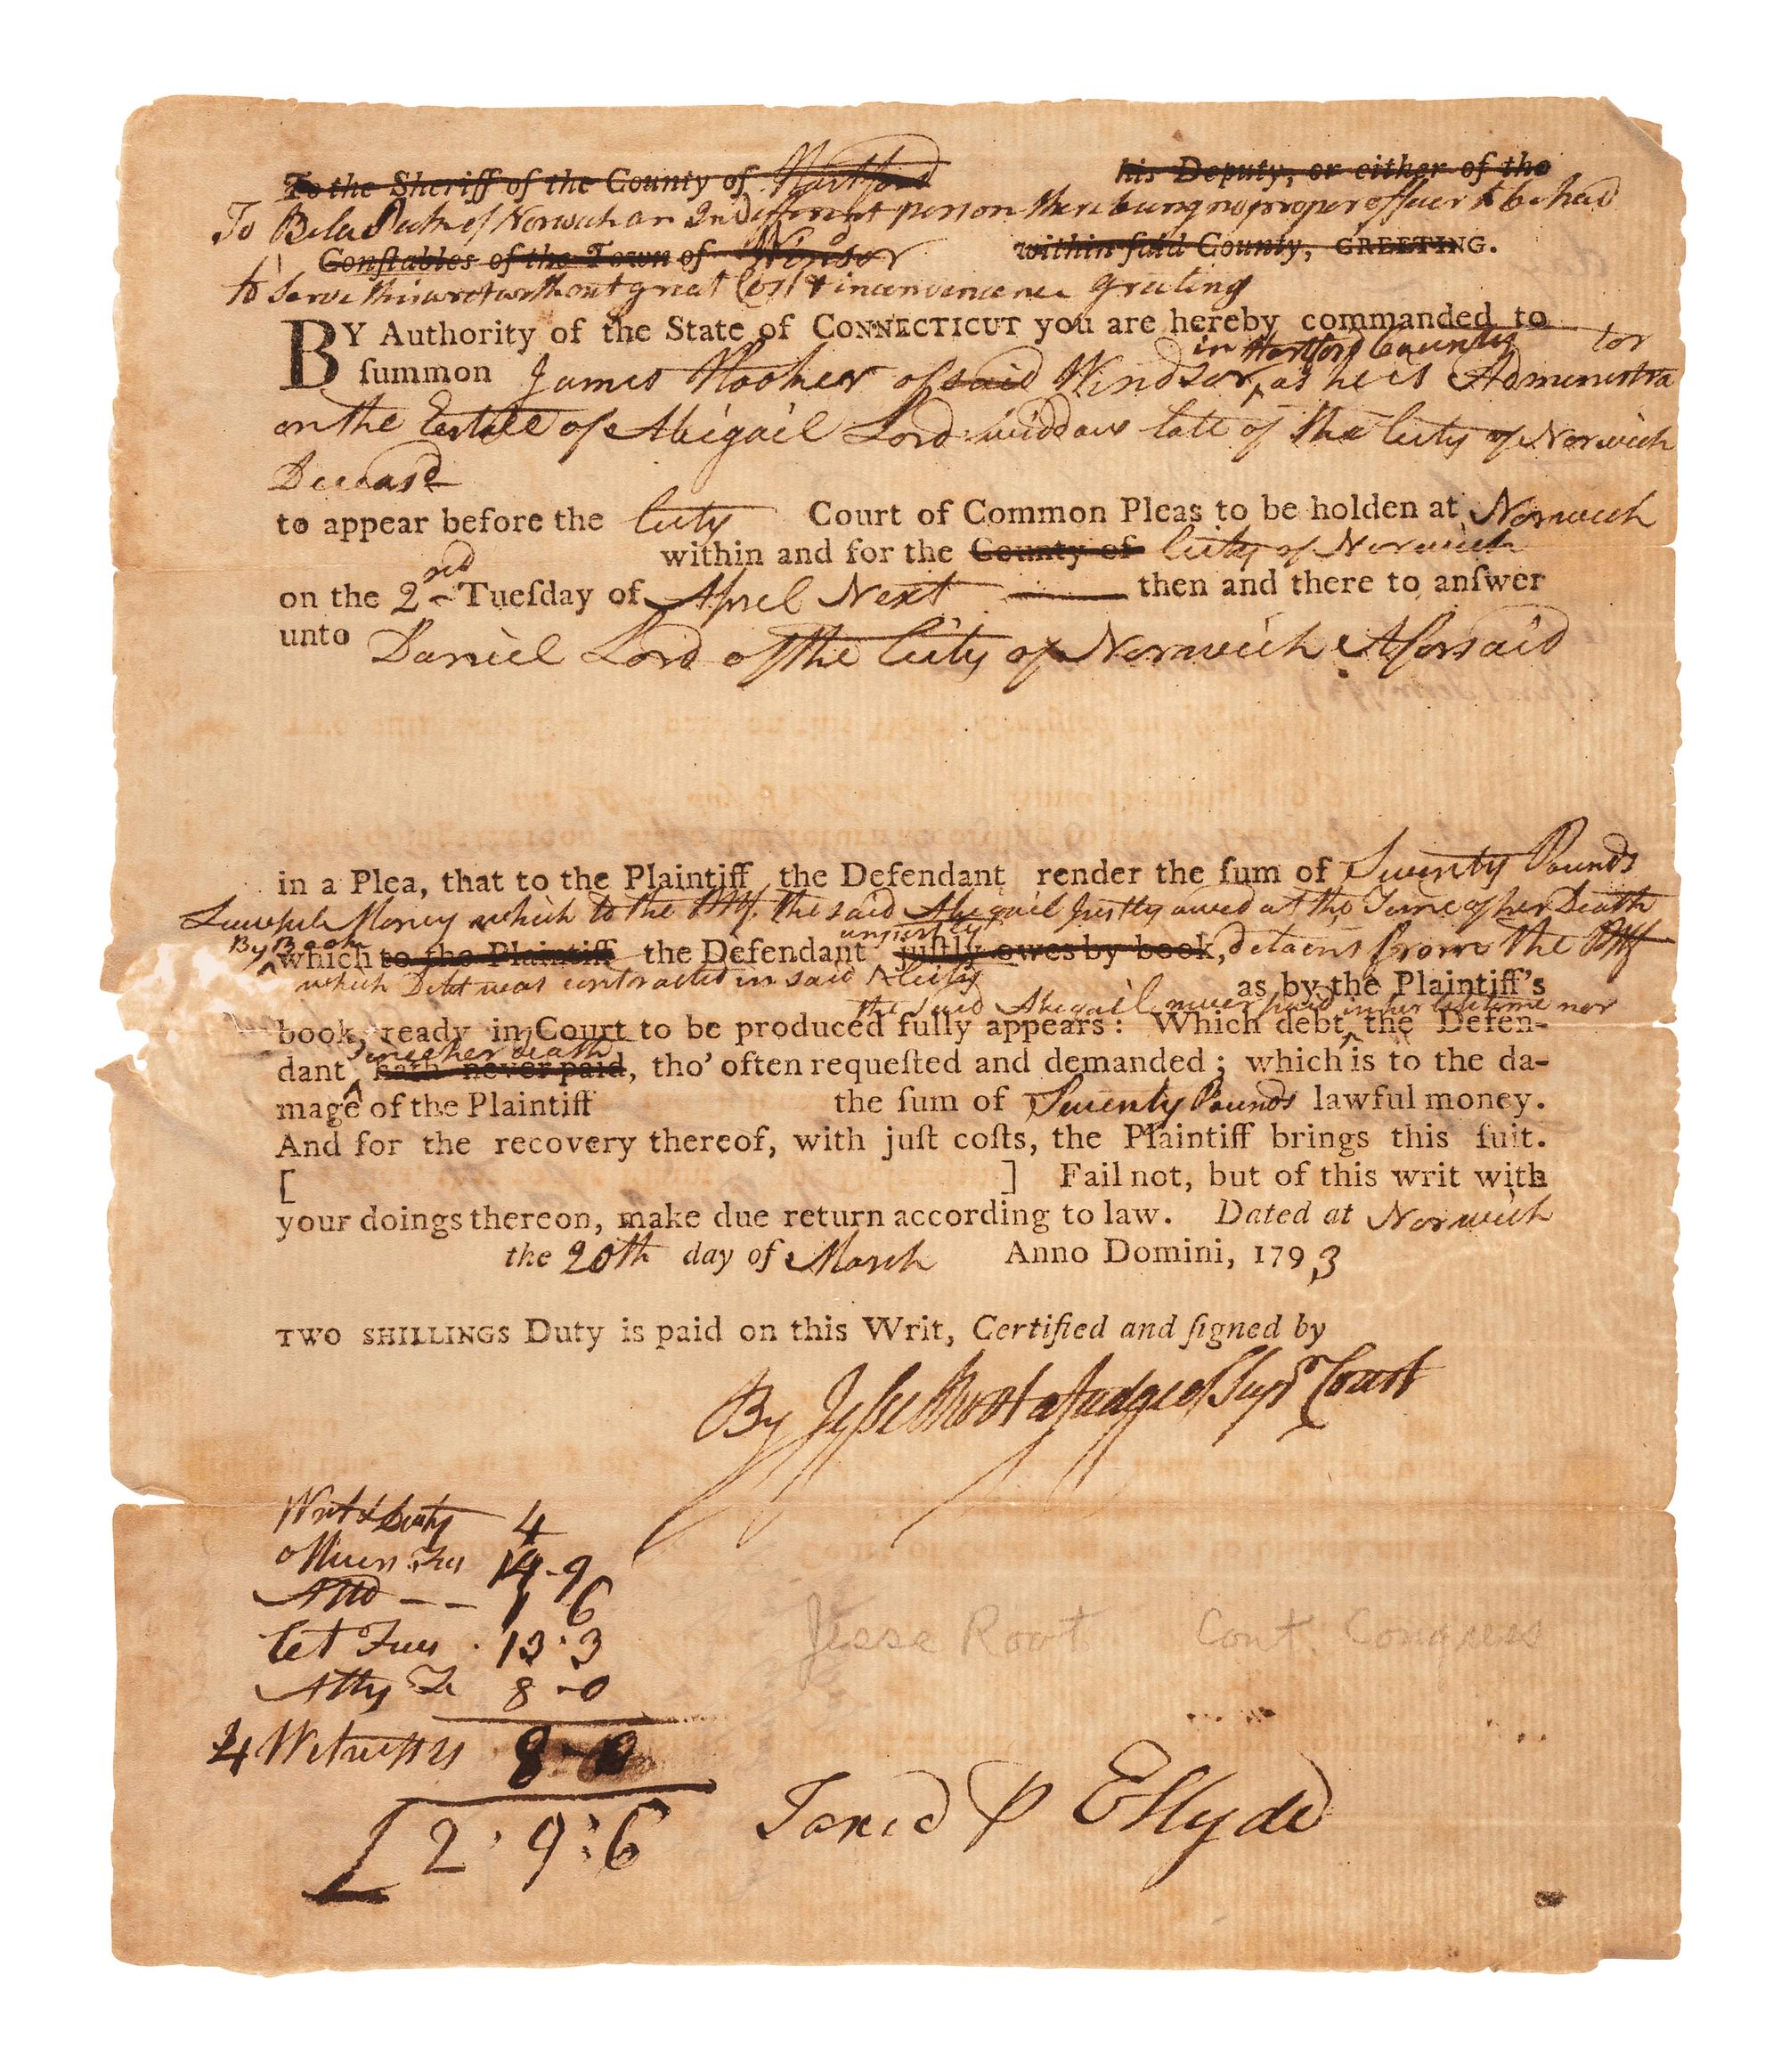 To the Sheriff of the County of Hartford his Deputy, or either of the
To Bela Peck of Norwich an Indifferent person there being no proper officer to be had
Conſtables of the Town of Windsor within ſaid County, GREETING.
to serve this writ without great Cost & inconvenience Greeting
BY Authority of the State of CONNECTICUT you are hereby commanded to
in Hartford County tor
ſummon James Hooker of said Windsor, as he is Administra
on the Estate of Abigail Lord widdow late of the City of Norwich
Deceasd
to appear before the City Court of Common Pleas to be holden at Norwich
within and for the County of City of Norwich
on the 2nd Tueſday of April Next then and there to anſwer
unto Daniel Lord of the City of Norwich Aforsaid
in a Plea, that to the Plaintiff the Defendant render the ſum of Twenty Pounds
Lawful Money which to the Plf. the said Abigail Justly owed at the Time of her Death
By Book unjustly
which to the Plaintiff the Defendant juſtly owes by book, detains from the Plf
which Debt was contracted in said City as by the Plaintiff's
the said Abigail never paid in her lifetime nor
book, ready in Court to be produced fully appears: Which debt the Defen-
Since her death
dant hath never paid, tho' often requeſted and demanded; which is to the da-
mage of the Plaintiff the ſum of Twenty Pounds lawful money.
And for the recovery thereof, with juſt coſts, the Plaintiff brings this ſuit.
[ ] Fail not, but of this writ with
your doings thereon, make due return according to law. Dated at Norwich
the 20th day of March Anno Domini, 1793
TWO SHILLINGS Duty is paid on this Writ, Certified and ſigned by
By Jesse Root a Judge of Supr Court
Writ & Duty 4
officers Fees 14-9
Attd -- 1 6
Cet Fees 13:3
Jesse Root Cont. Congress
Atty Fe 8-0
4 Witnesses 8-0
£2:9:6
Taxed P E Hyde